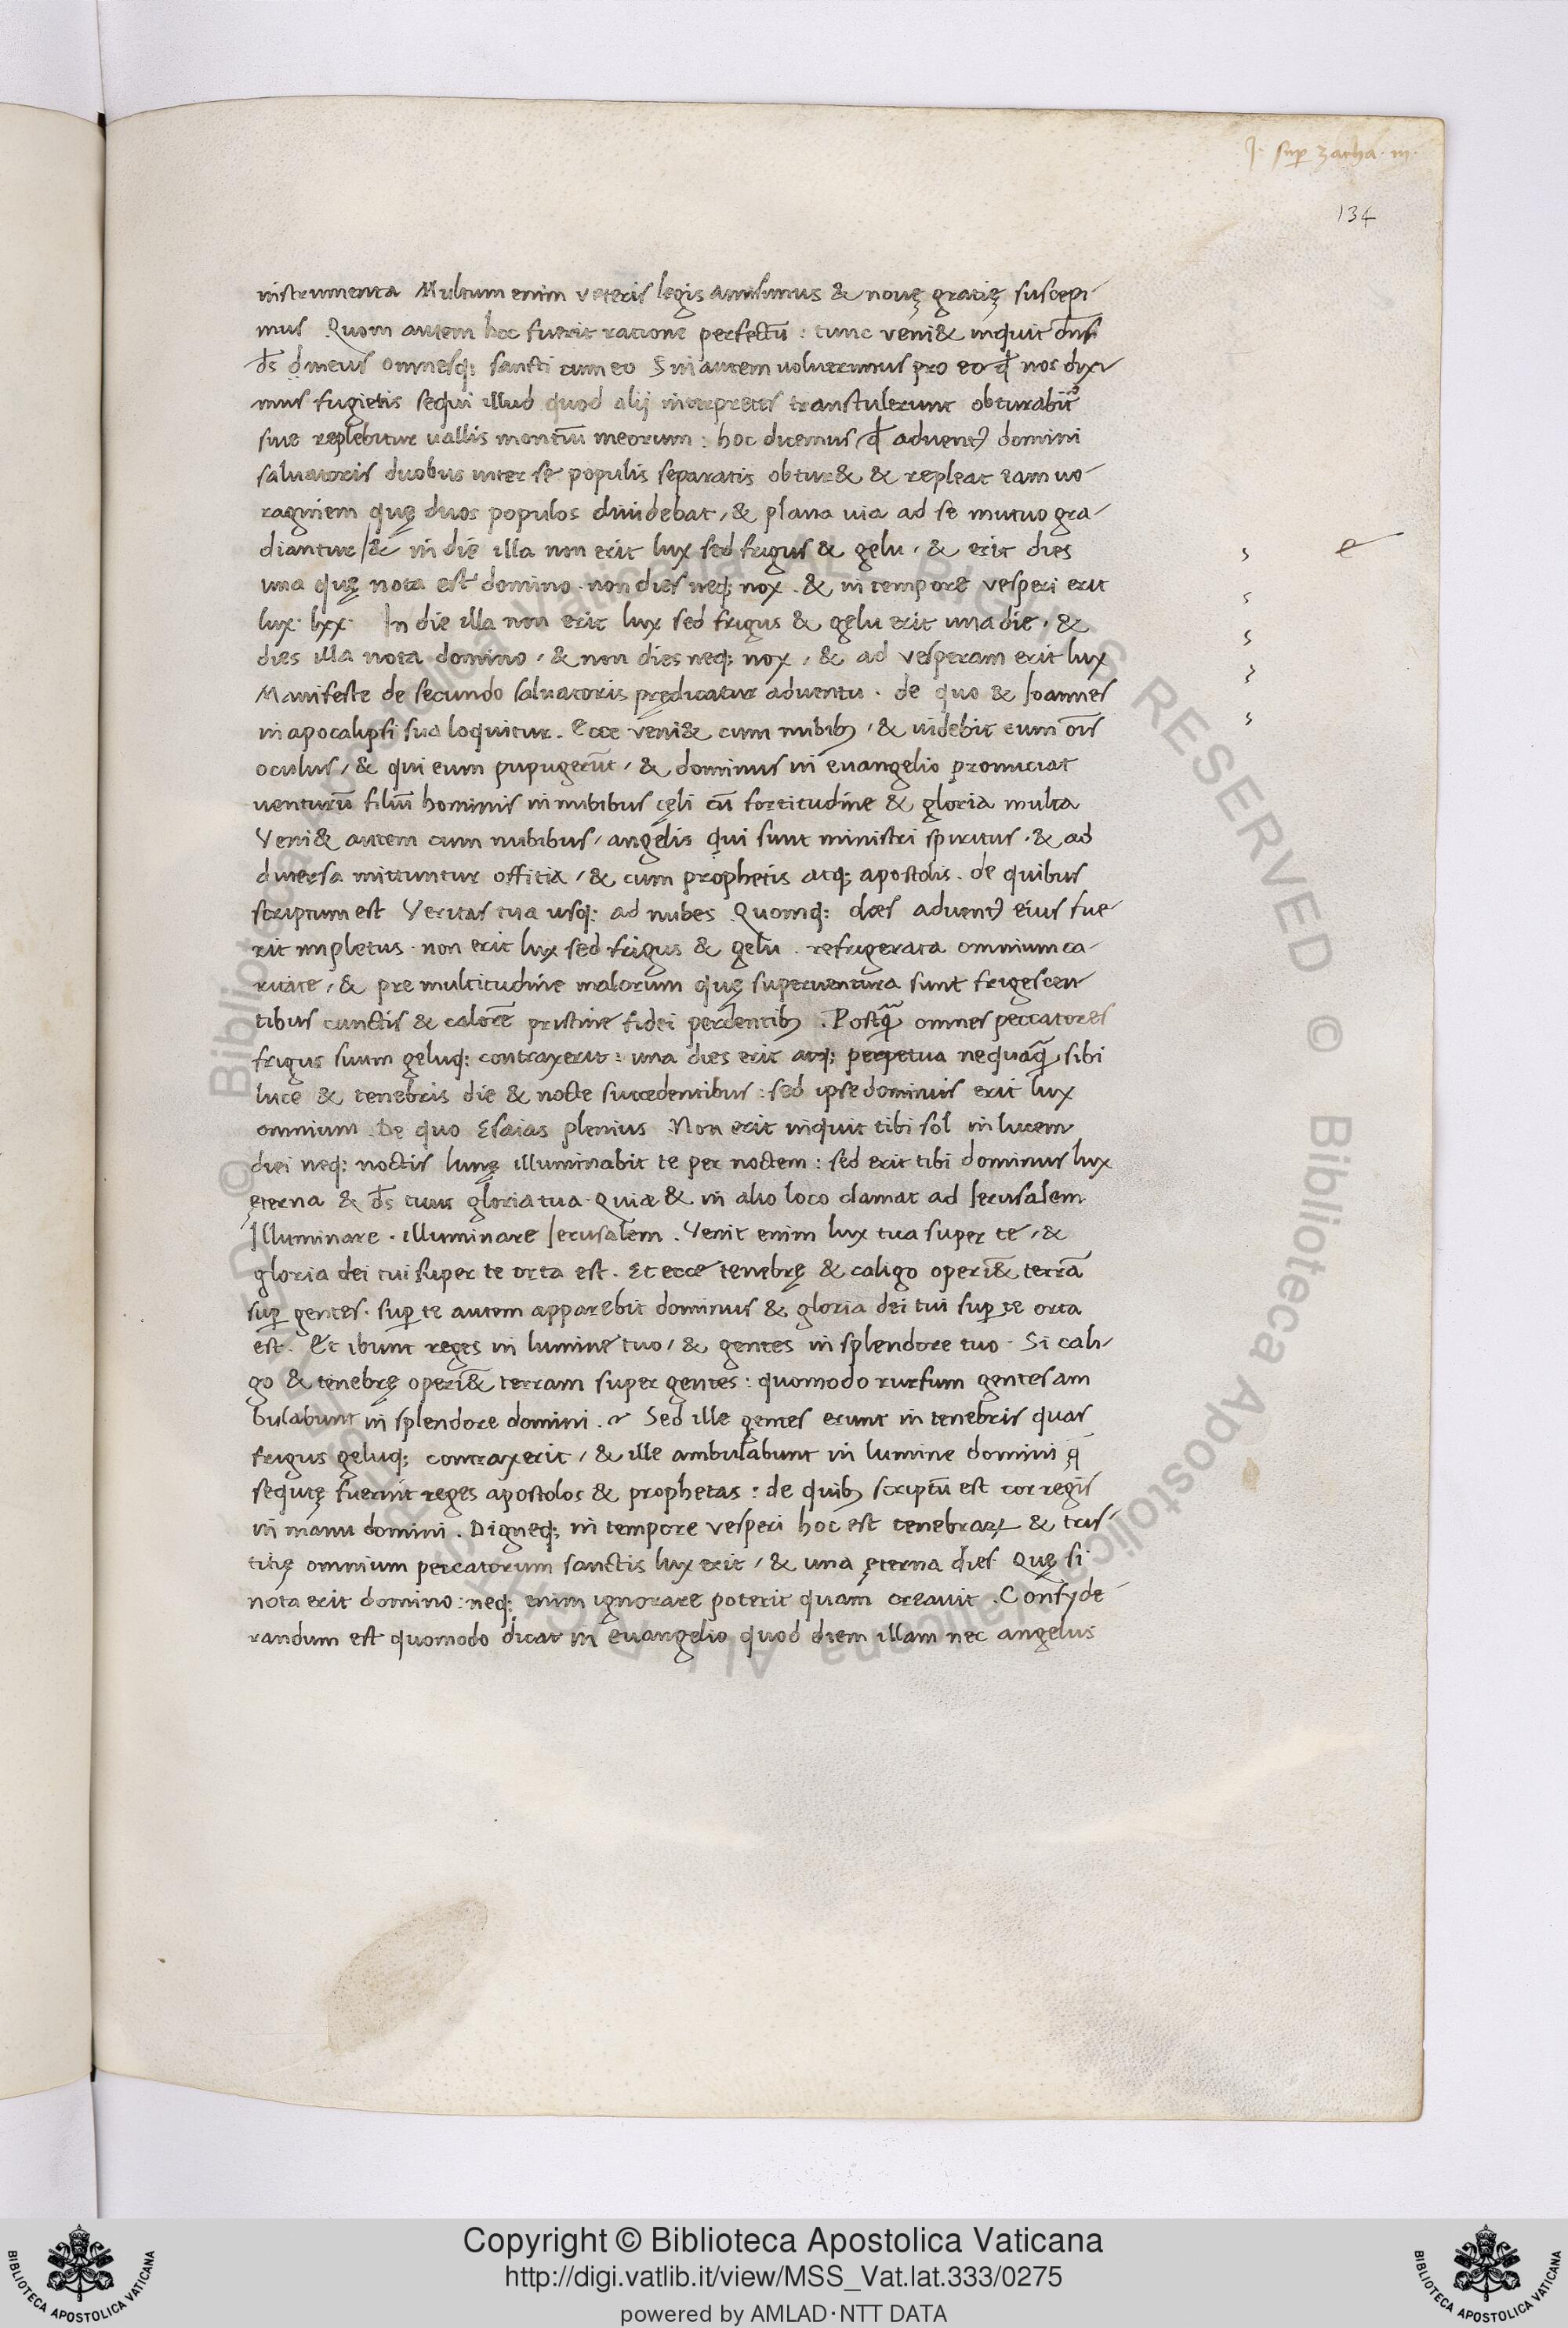 J. sup zacha. iii.
134
instrumenta Multum enim veteris legis amisimus & nouę gratię suscepi
mus Quom autem hoc fuerit ratione perfectū : tunc veni& inquit dn̄s
d̄s meus omnesq; sancti cum eo Sin autem uoluerimus pro eo qđ nos dyxi
mus fugietis sequi illud quod alij interpretes transtulerunt obturabit᷑
siue replebitur uallis montiū meorum : hoc dicemus qđ aduentꝰ domini
saluatoris duobus inter se populis separatis obtur& & repleat eam uo
raginem quę duos populos diuidebat, & plana uia ad se mutuo gra
diantur / & in die illa non erit lux sed frigus & gelu, & erit dies
una quę nota est domino. non dies neq; nox. & in tempore vesperi erit
lux. lxx. In die illa non erit lux sed frigus & gelu erit una die, &
dies illa nota domino, & non dies neq; nox, & ad vesperam erit lux
Manifeste de secundo saluatoris prędicatur aduentu. de quo & Ioannes
in apocalipsi sua loquitur. Ecce veni& cum nubibꝰ, & uidebit eum oīs
oculus, & qui eum pupugerūt, & dominus in euangelio pronuciat
uenturū filiū hominis in nubibus cęli cū fortitudine & gloria multa
Veni& autem cum nubibus, angelis qui sunt ministri spiritus. & ad
diuersa mittuntur offitia, & cum prophetis atq; apostolis. de quibus
scriptum est Veritas tua usq; ad nubes. Quomq; dies aduentꝰ eius fue
rit impletus. non erit lux sed frigus & gelu. refrigerata omnium ca
ritate, & pre multitudine malorum quę superuentura sunt frigescen
tibus cunctis & calorē pristine fidei perdentibꝰ. Postq̄ omnes peccatores
frigus suum geluq; contraxerit : una dies erit atq; perpetua nequaq̄ sibi
luce & tenebris die & nocte succedentibus : sed ipse dominus erit lux
omnium. De quo Esaias plenius Non erit inquit tibi sol in lucem
diei neq; noctis lunę illuminabit te per noctem : sed erit tibi dominus lux
ęterna & d̄s tuus gloria tua. Quiæ & in alio loco clamat ad Ierusalem
Illuminare. illuminare Ierusalem. Venit enim lux tua super te, &
gloria dei tui super te orta est. Et ecce tenebrę & caligo operī& terrā
suꝑ gentes. suꝑ te autem apparebit dominus & gloria dei tui suꝑ te orta
est. Et ibunt reges in lumine tuo, & gentes in splendore tuo. Si cali
go & tenebrę operī& terram super gentes : quomodo rursum gentes am
bulabunt in splendore domini. Sed ille gentes erunt in tenebris quas
frigus geluq; contraxerit, & ille ambulabunt in lumine domini q̄
sequtę fuerint reges apostolos & prophetas : de quibꝰ scriptū est cor regis
in manu domini. Digneq; in tempore vesperi hoc est tenebraꝝ & tris
titię omnium peccatorum sanctis lux erit, & una ęterna dies. Quę si
nota erit domino : neq; enim ignorare poterit quam creauit. Consyde
randum est quomodo dicat in euangelio quod diem illam nec angelus
e
© Biblioteca Apostolica Vaticana ALL RIGHTS RESERVED
Copyright © Biblioteca Apostolica Vaticana
http://digi.vatlib.it/view/MSS_Vat.lat.333/0275
powered by AMLAD·NTT DATA
BIBLIOTECA APOSTOLICA VATICANA
BIBLIOTECA APOSTOLICA VATICANA